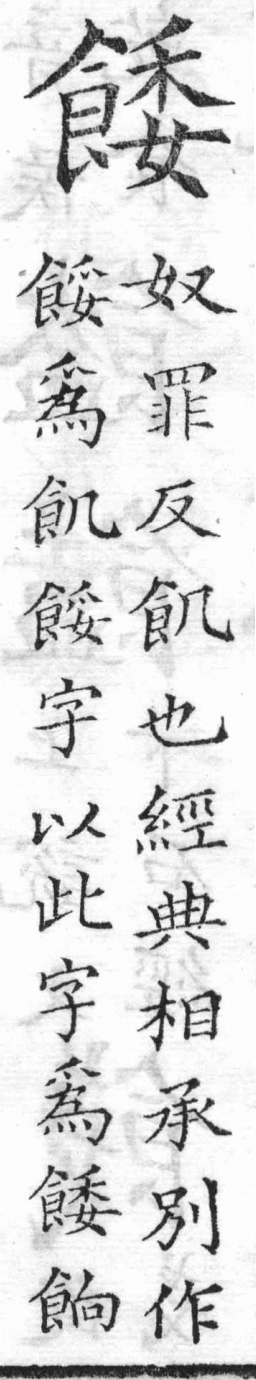 餧
奴罪反飢也經典相承別作
餒爲飢餒字以此字爲餧餉